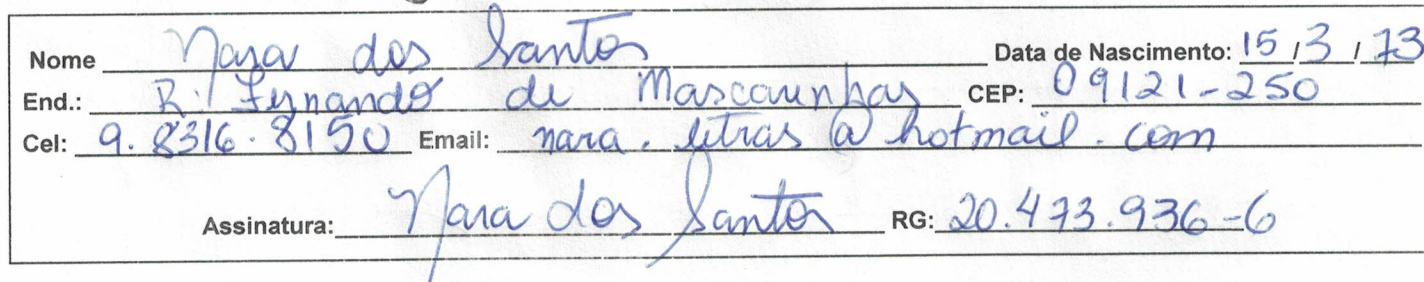 Nome Nara dos Santos Data de Nascimento: 15 / 3 / 73
End.: R. Fernando de Mascarenhas CEP: 09121-250
Cel: 9.8316.8150 Email: nara.letras@hotmail.com
Assinatura: Nara dos Santos RG: 20.473.936-6